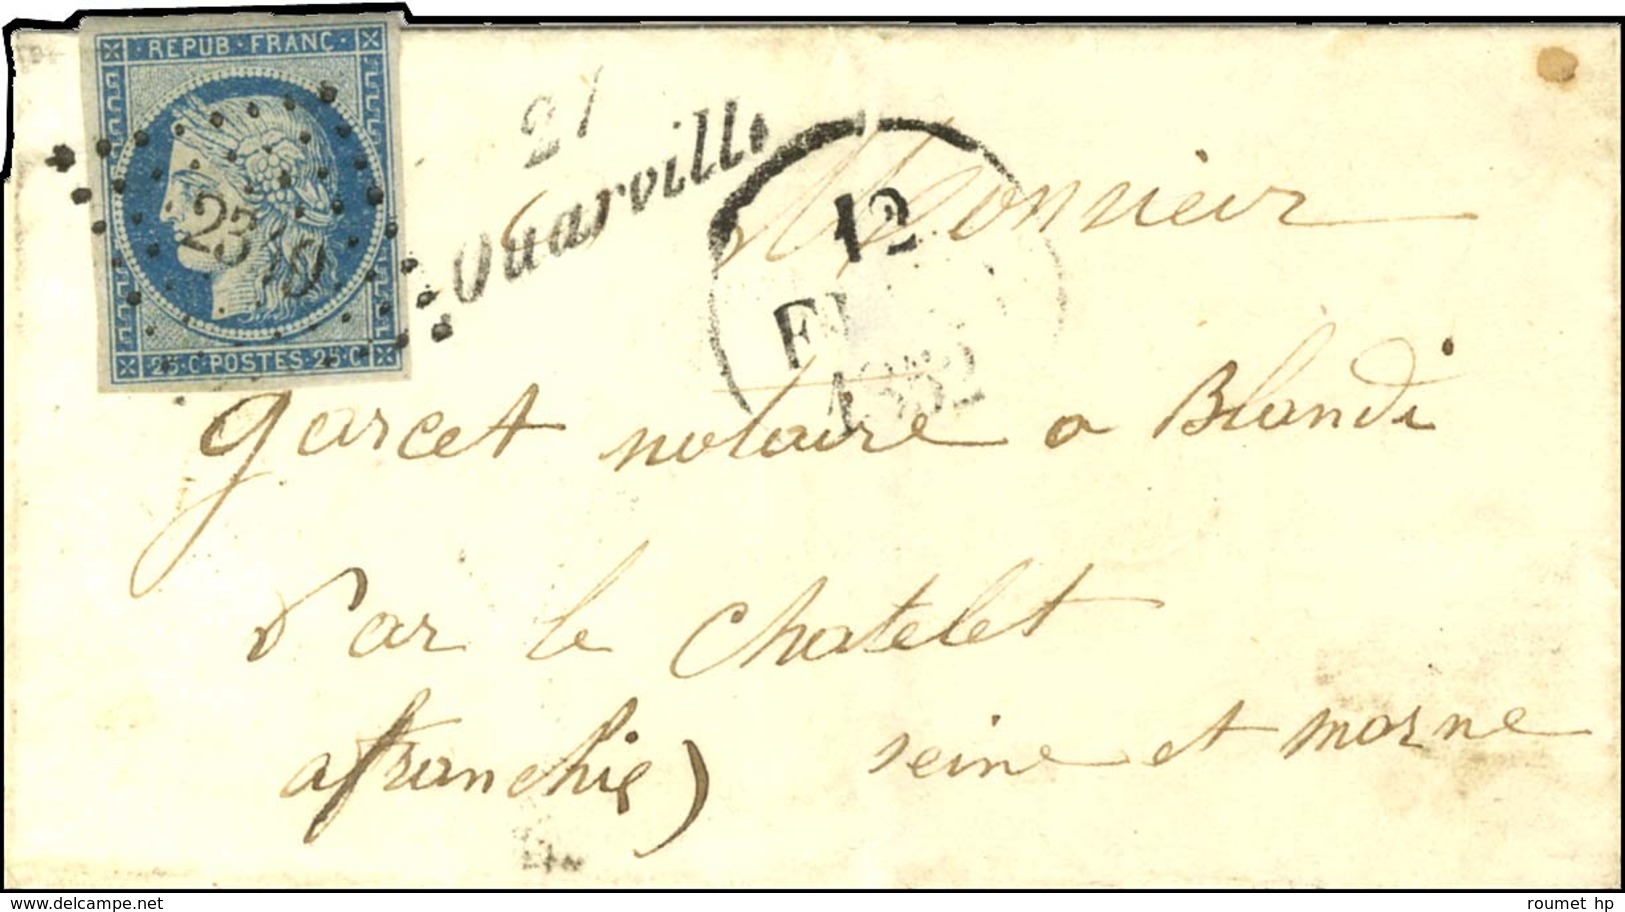 REPUB·FRANC·
25·C·POSTES·25·C
21
Ouarville
12
1852
Monsieur
garcet notaire a Blandi
Par le Chatelet
afranchie)
seine et marne
delcampe.net
roumet hp